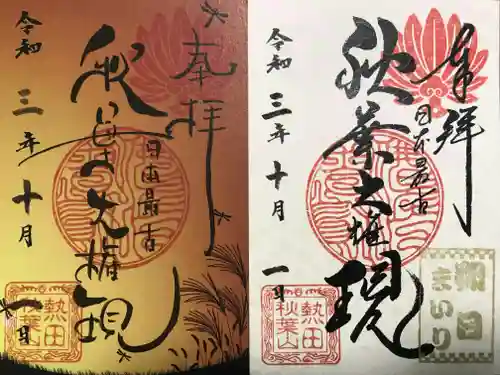 奉拝
日本最古
秋葉大権現
令和三年十月一日
熱田
秋葉山
奉拝
日本最古
秋葉大権現
令和三年十月一日
熱田
秋葉山
朔日
まいり